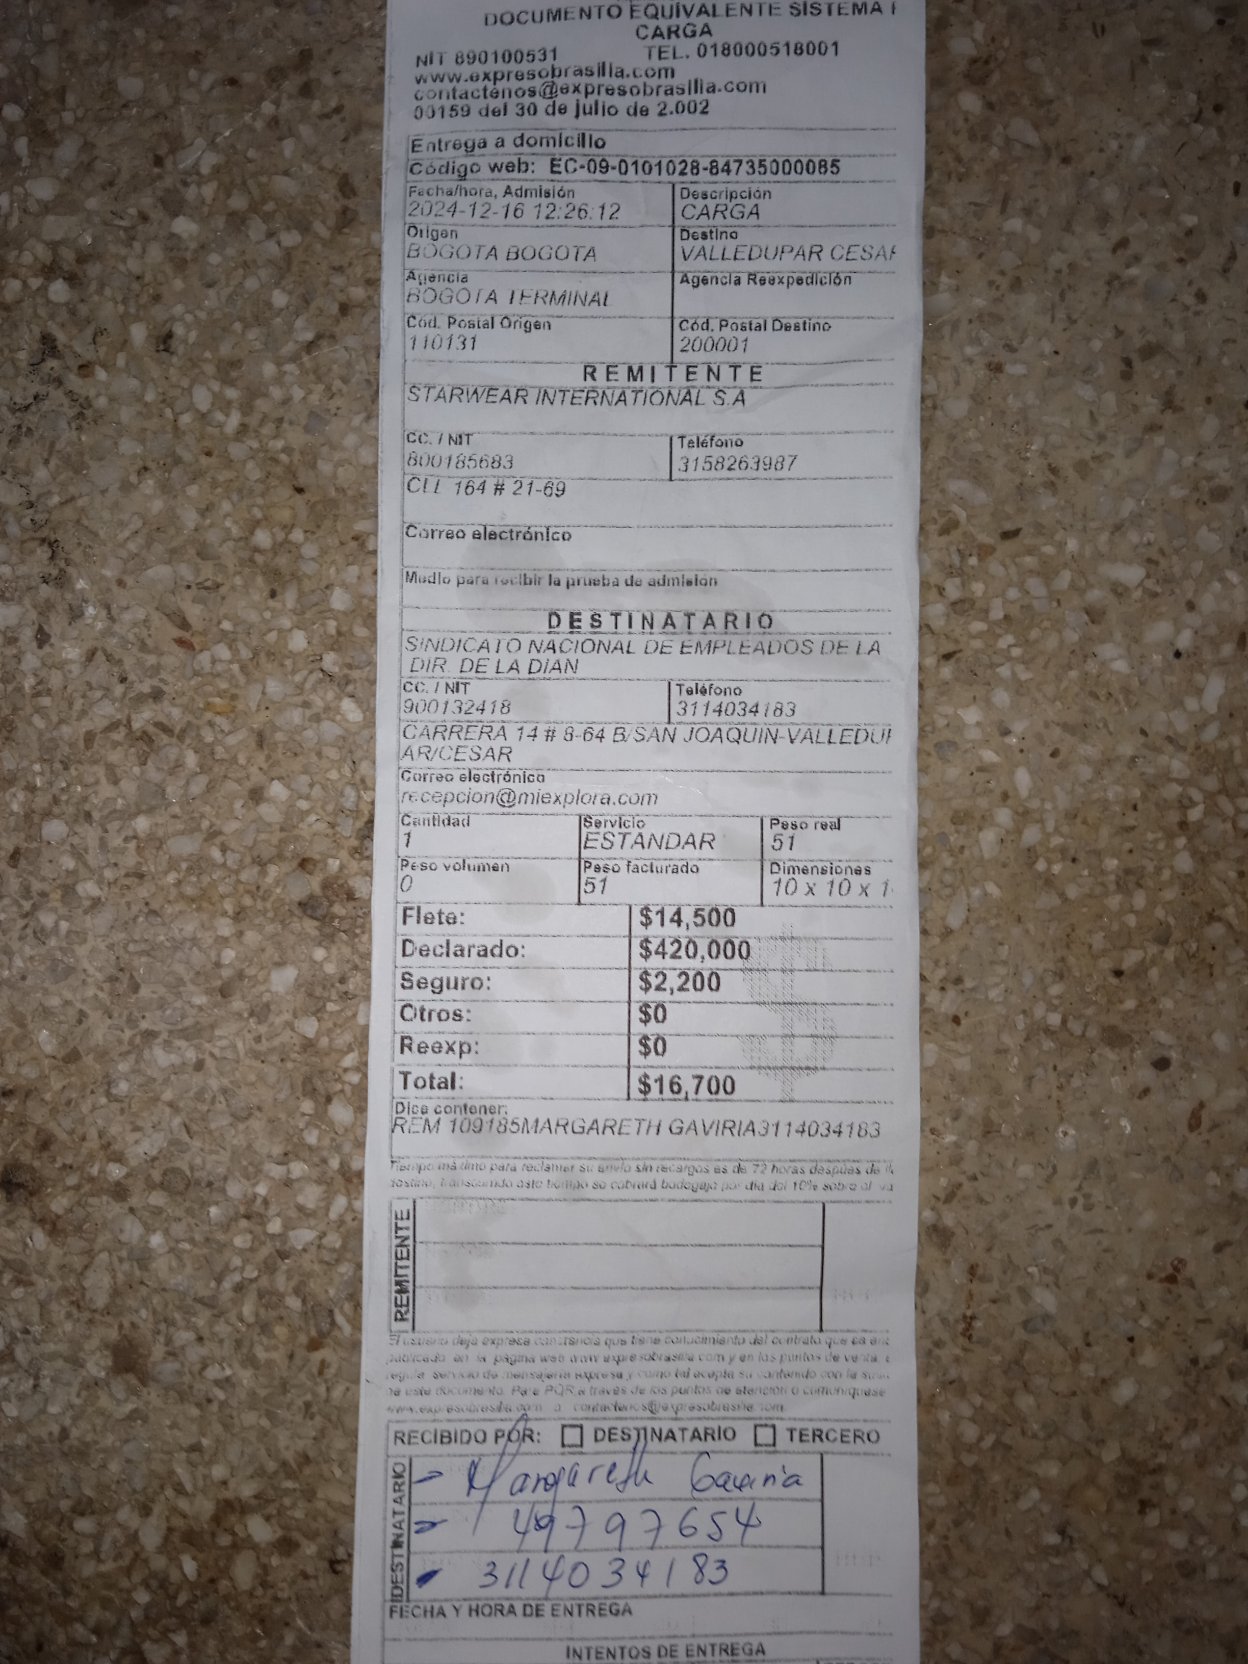 DOCUMENTO EQUIVALENTE SISTEMA
CARGA
NIT 890100531 TEL. 018000518001
www.expresobrasilia.com
contactenos@expresobrasilia.com
00159 del 30 de julio de 2.002
Entrega a domicilio
Código web: EC-09-0101028-84735000085
Fecha/hora, Admisión Descripción
2024-12-16 12:26:12 CARGA
Origen Destino
BOGOTA BOGOTA VALLEDUPAR CESAR
Agencia Agencia Reexpedición
BOGOTA TERMINAL
Cód. Postal Origen Cód. Postal Destino
110131 200001
REMITENTE
STARWEAR INTERNATIONAL S.A
CC. / NIT Teléfono
800185683 3158263987
CLL 164 # 21-69
Correo electrónico
Medio para recibir la prueba de admisión
DESTINATARIO
SINDICATO NACIONAL DE EMPLEADOS DE LA
DIR. DE LA DIAN
CC. / NIT Teléfono
900132418 3114034183
CARRERA 14 # 8-64 B/SAN JOAQUIN-VALLEDUP
AR/CESAR
Correo electrónico
recepcion@miexplora.com
Cantidad Servicio Peso real
1 ESTANDAR 51
Peso volumen Peso facturado Dimensiones
0 51 10 x 10 x 1
Flete: $14,500
Declarado: $420,000
Seguro: $2,200
Otros: $0
Reexp: $0
Total: $16,700
Dice contener:
REM 109185MARGARETH GAVIRIA3114034183
Tiempo máximo para reclamar su envío sin recargos es de 72 horas después de
destino, transcurrido este tiempo se cobrará bodegaje por día del 10% sobre el
REMITENTE
El usuario deja expresa constancia que tiene conocimiento del contrato que se
publicado en la página web www.expresobrasilia.com y en los puntos de venta,
regula servicio de mensajería expresa y como tal acepta su contenido con la
de este documento. Para PQR a través de los puntos de atención o comuníquese
www.expresobrasilia.com o contactenos@expresobrasilia.com
RECIBIDO POR: DESTINATARIO TERCERO
DESTINATARIO
- Margareth Gaviria
- 49797654
- 3114034183
FECHA Y HORA DE ENTREGA
INTENTOS DE ENTREGA